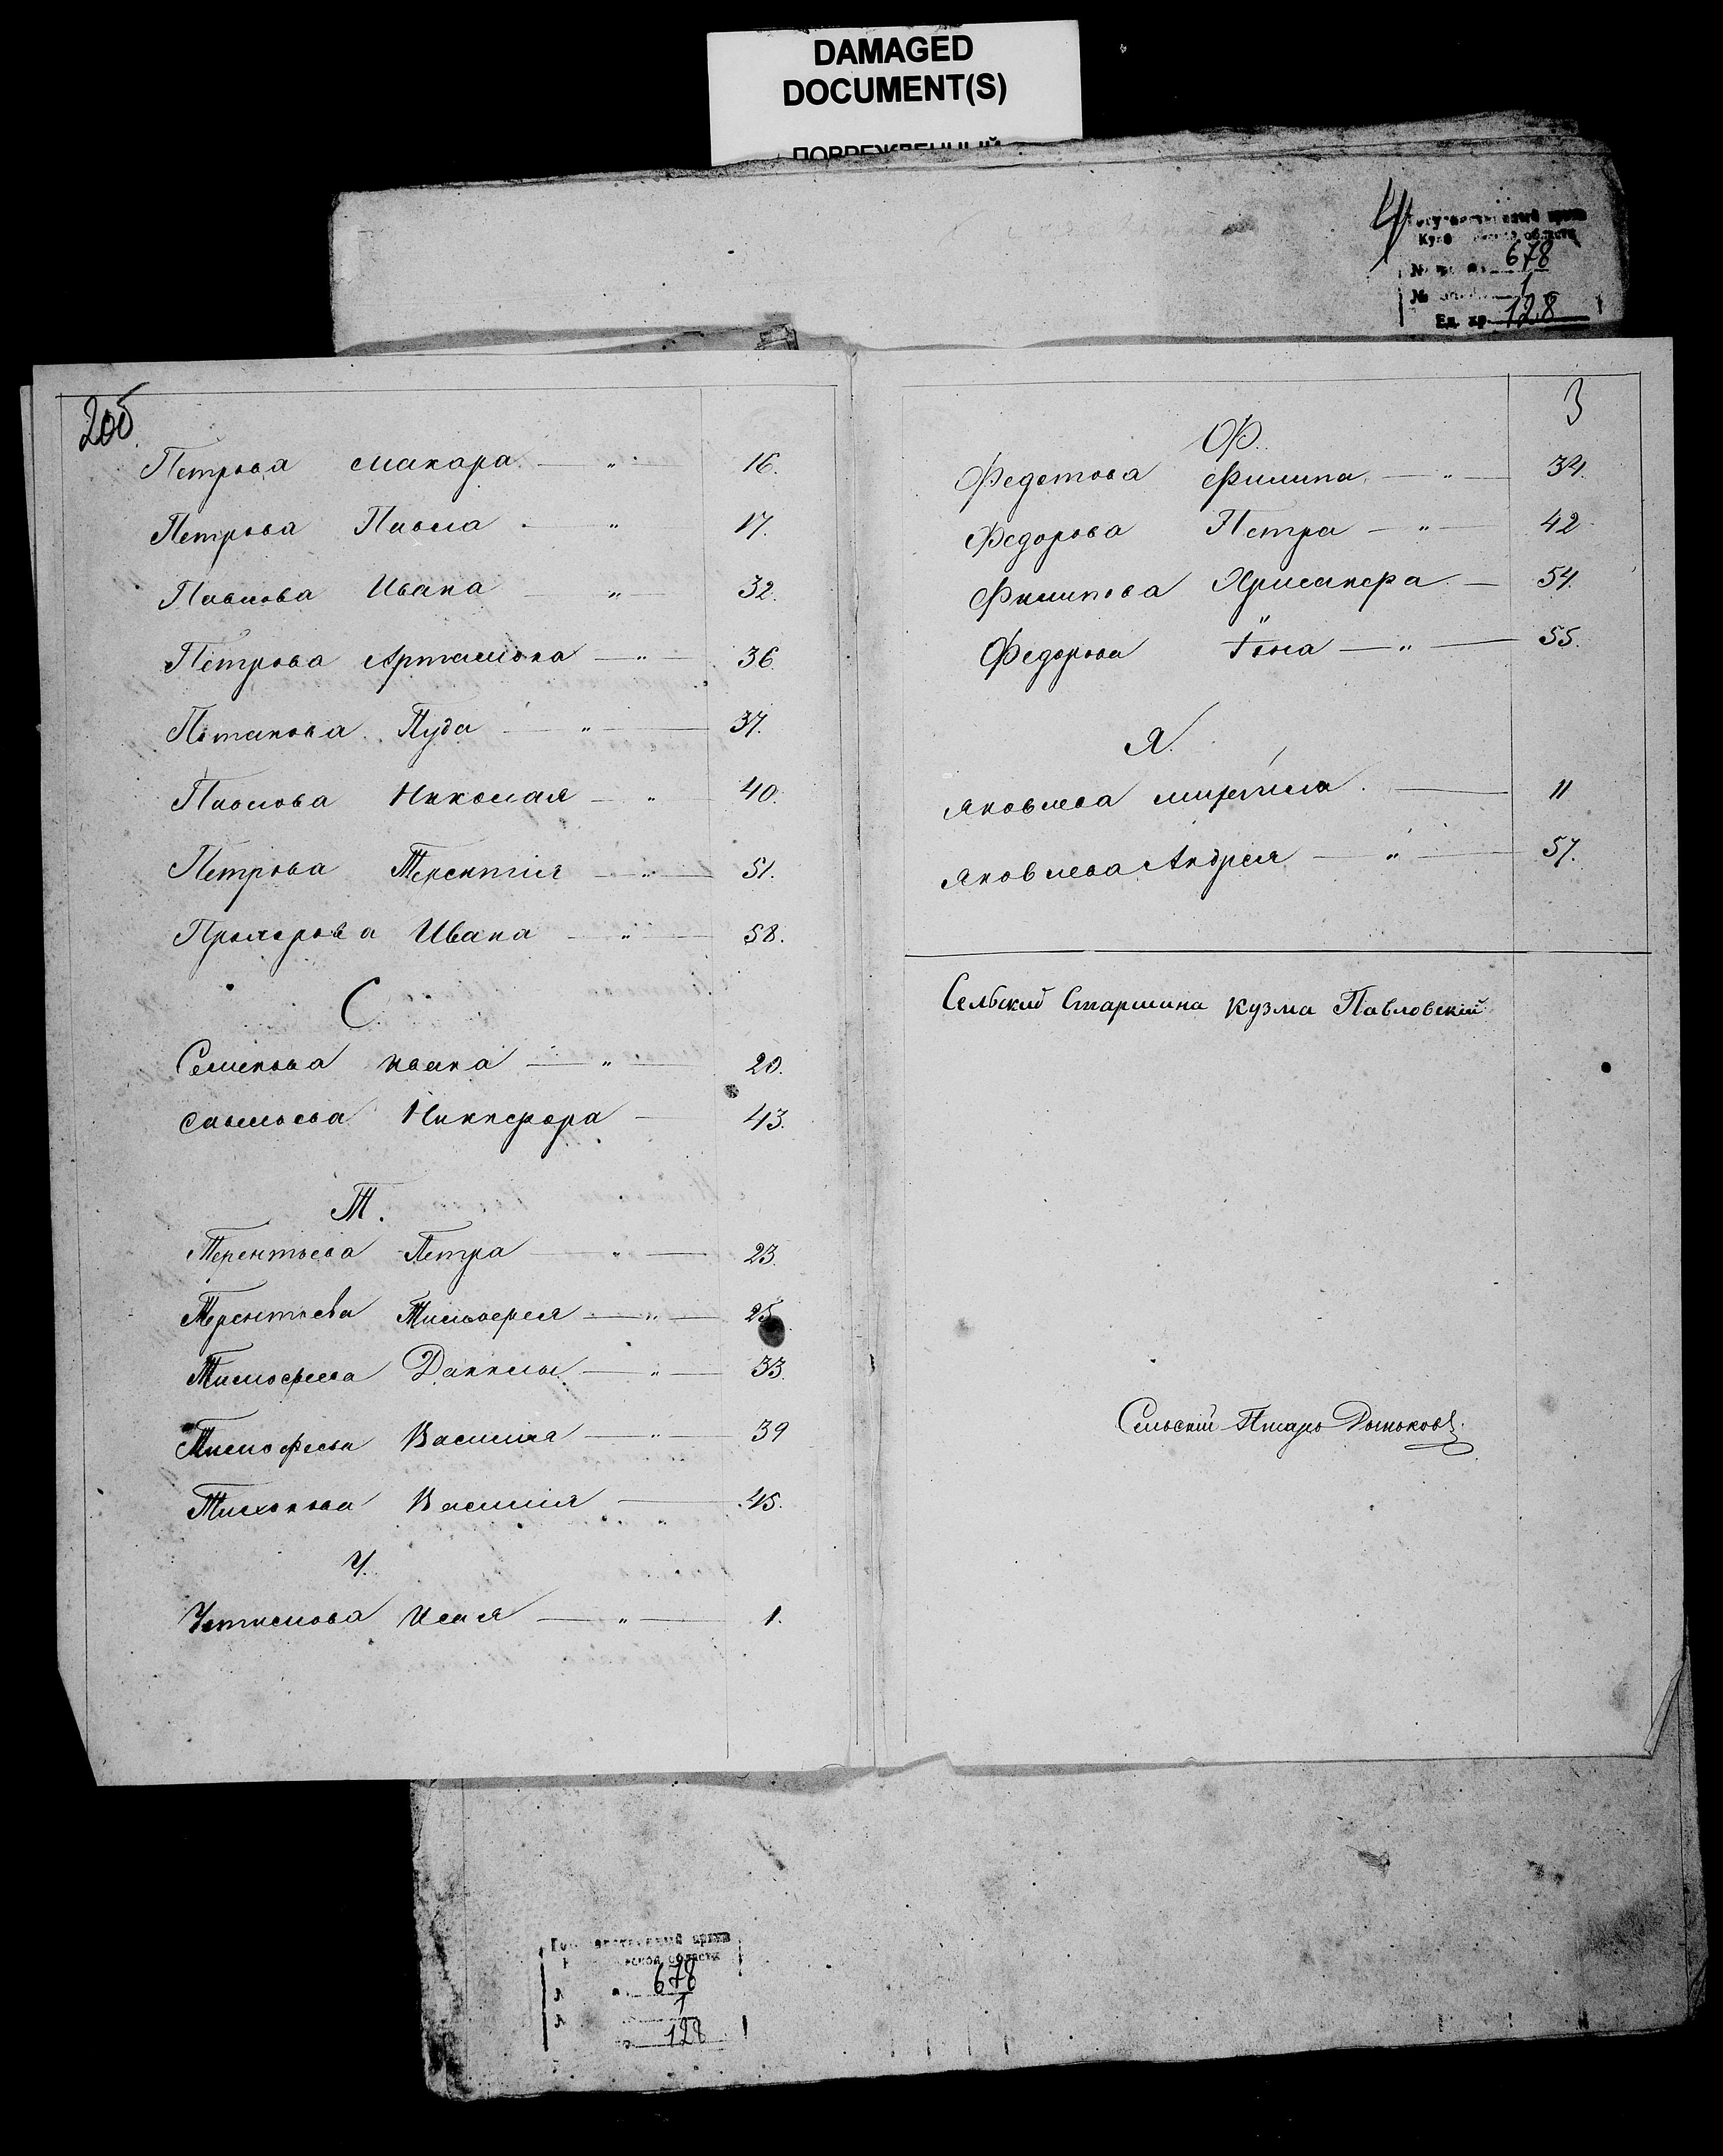 DAMAGED
DOCUMENT(S)
ПОВРЕЖДЕННЫЙ
678
1
Ед. хр. 128
2об
Петрова Макара — " — 16.
Петрова Павла — " 17.
Павлова Ивана — " — 32.
Петрова Артамона — " — 36.
Потапова Пуда — " — 37.
Павлова Николая — " — 40.
Петрова Терентія — " — 51.
Прохорова Ивана — " — 58.
С.
Семенова Ивана — " — 20.
Савельева Никифора — 43.
Т.
Терентьева Петра — " — 23.
Терентьева Тимофея — " — 25
Тимофеева Данилы — " — 33.
Тимофеева Василия — " — 39
Тихонова Василія — " — 45.
У.
Устинова Исая — " — 1.
3
Ф.
Федотова Филипа — " — 34.
Федорова Петра — " — 42
Филипова Хрисанфа — 54.
Федорова Іона — " — 55.
Я.
Яковлева Михаила — 11
Яковлева Андрея — " — 57.
Сельский Старшина Кузма Павловскій
Сельскій Писарь
678
1
128